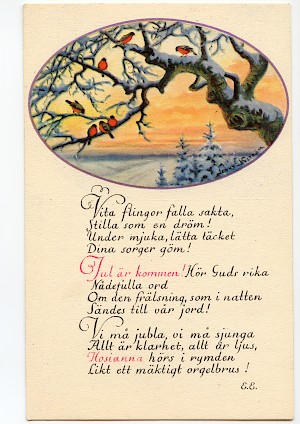 Vita flingor falla sakta,
Stilla som en dröm!
Under mjuka, lätta täcket
Dina sorger göm!
Jul är kommen! Hör Guds rika
Nådefulla ord
Om den frälsning, som i natten
Sändes till vår jord!
Vi må jubla, vi må sjunga
Allt är klarhet, allt är ljus,
Hosianna hörs i rymden
Likt ett mäktigt orgelbrus!
E.E.